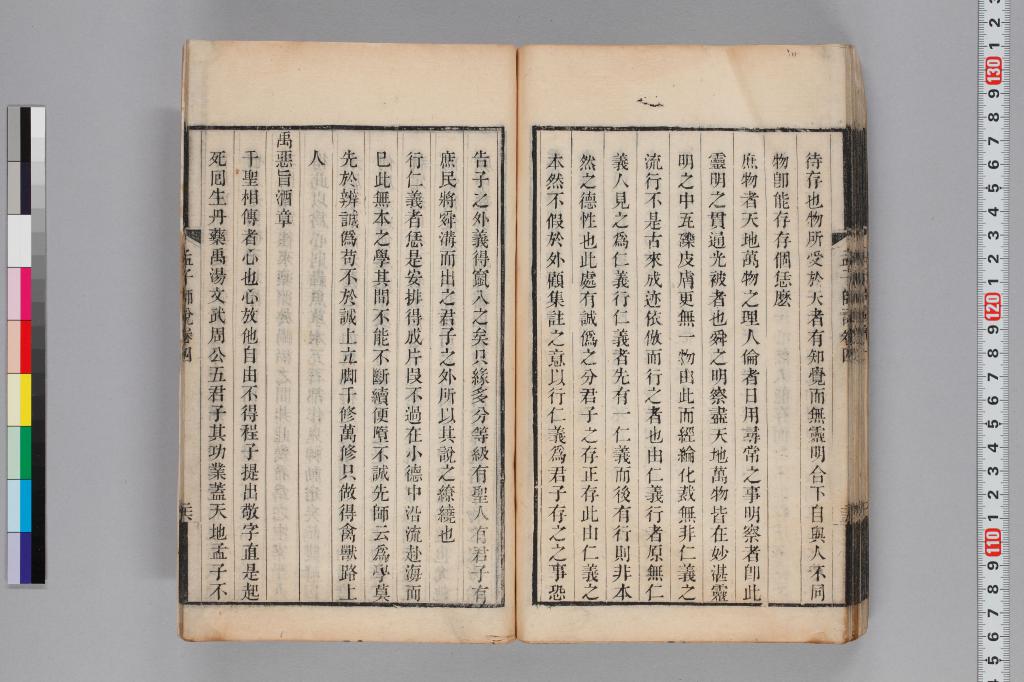 待存也物所受於天者有知覺而無靈明合下自與人不同
物卽能存存個恁麽
庶物者天地萬物之理人倫者日用尋常之事明察者卽此
靈明之貫通光被者也舜之明察盡天地萬物皆在妙湛靈
明之中五臟皮膚更無一物由此而經綸化裁無非仁義之
流行不是古來成迹依倣而行之者也由仁義行者原無仁
義人見之爲仁義行仁義者先有一仁義而後有行則非本
然之德性也此處有誠僞之分君子之存正存此由仁義之
本然不假於外顧集註之意以行仁義爲君子存之之事恐
孟子師說卷四
告子之外義得竄入之矣只緣多分等級有聖人有君子有
庶民將舜溝而出之君子之外所以其說之繚繞也
行仁義者恁是安排得成片段不過在小德中沿流赴海而
已此無本之學其間不能不斷續便墮不誠先師云爲學莫
先於辨誠僞苟不於誠上立脚千修萬修只做得禽獸路上
人
禹惡旨酒章
千聖相傳者心也心放他自由不得程子提出敬字直是起
死囘生丹藥禹湯文武周公五君子其功業蓋天地孟子不
孟子師說卷四
130
120
110